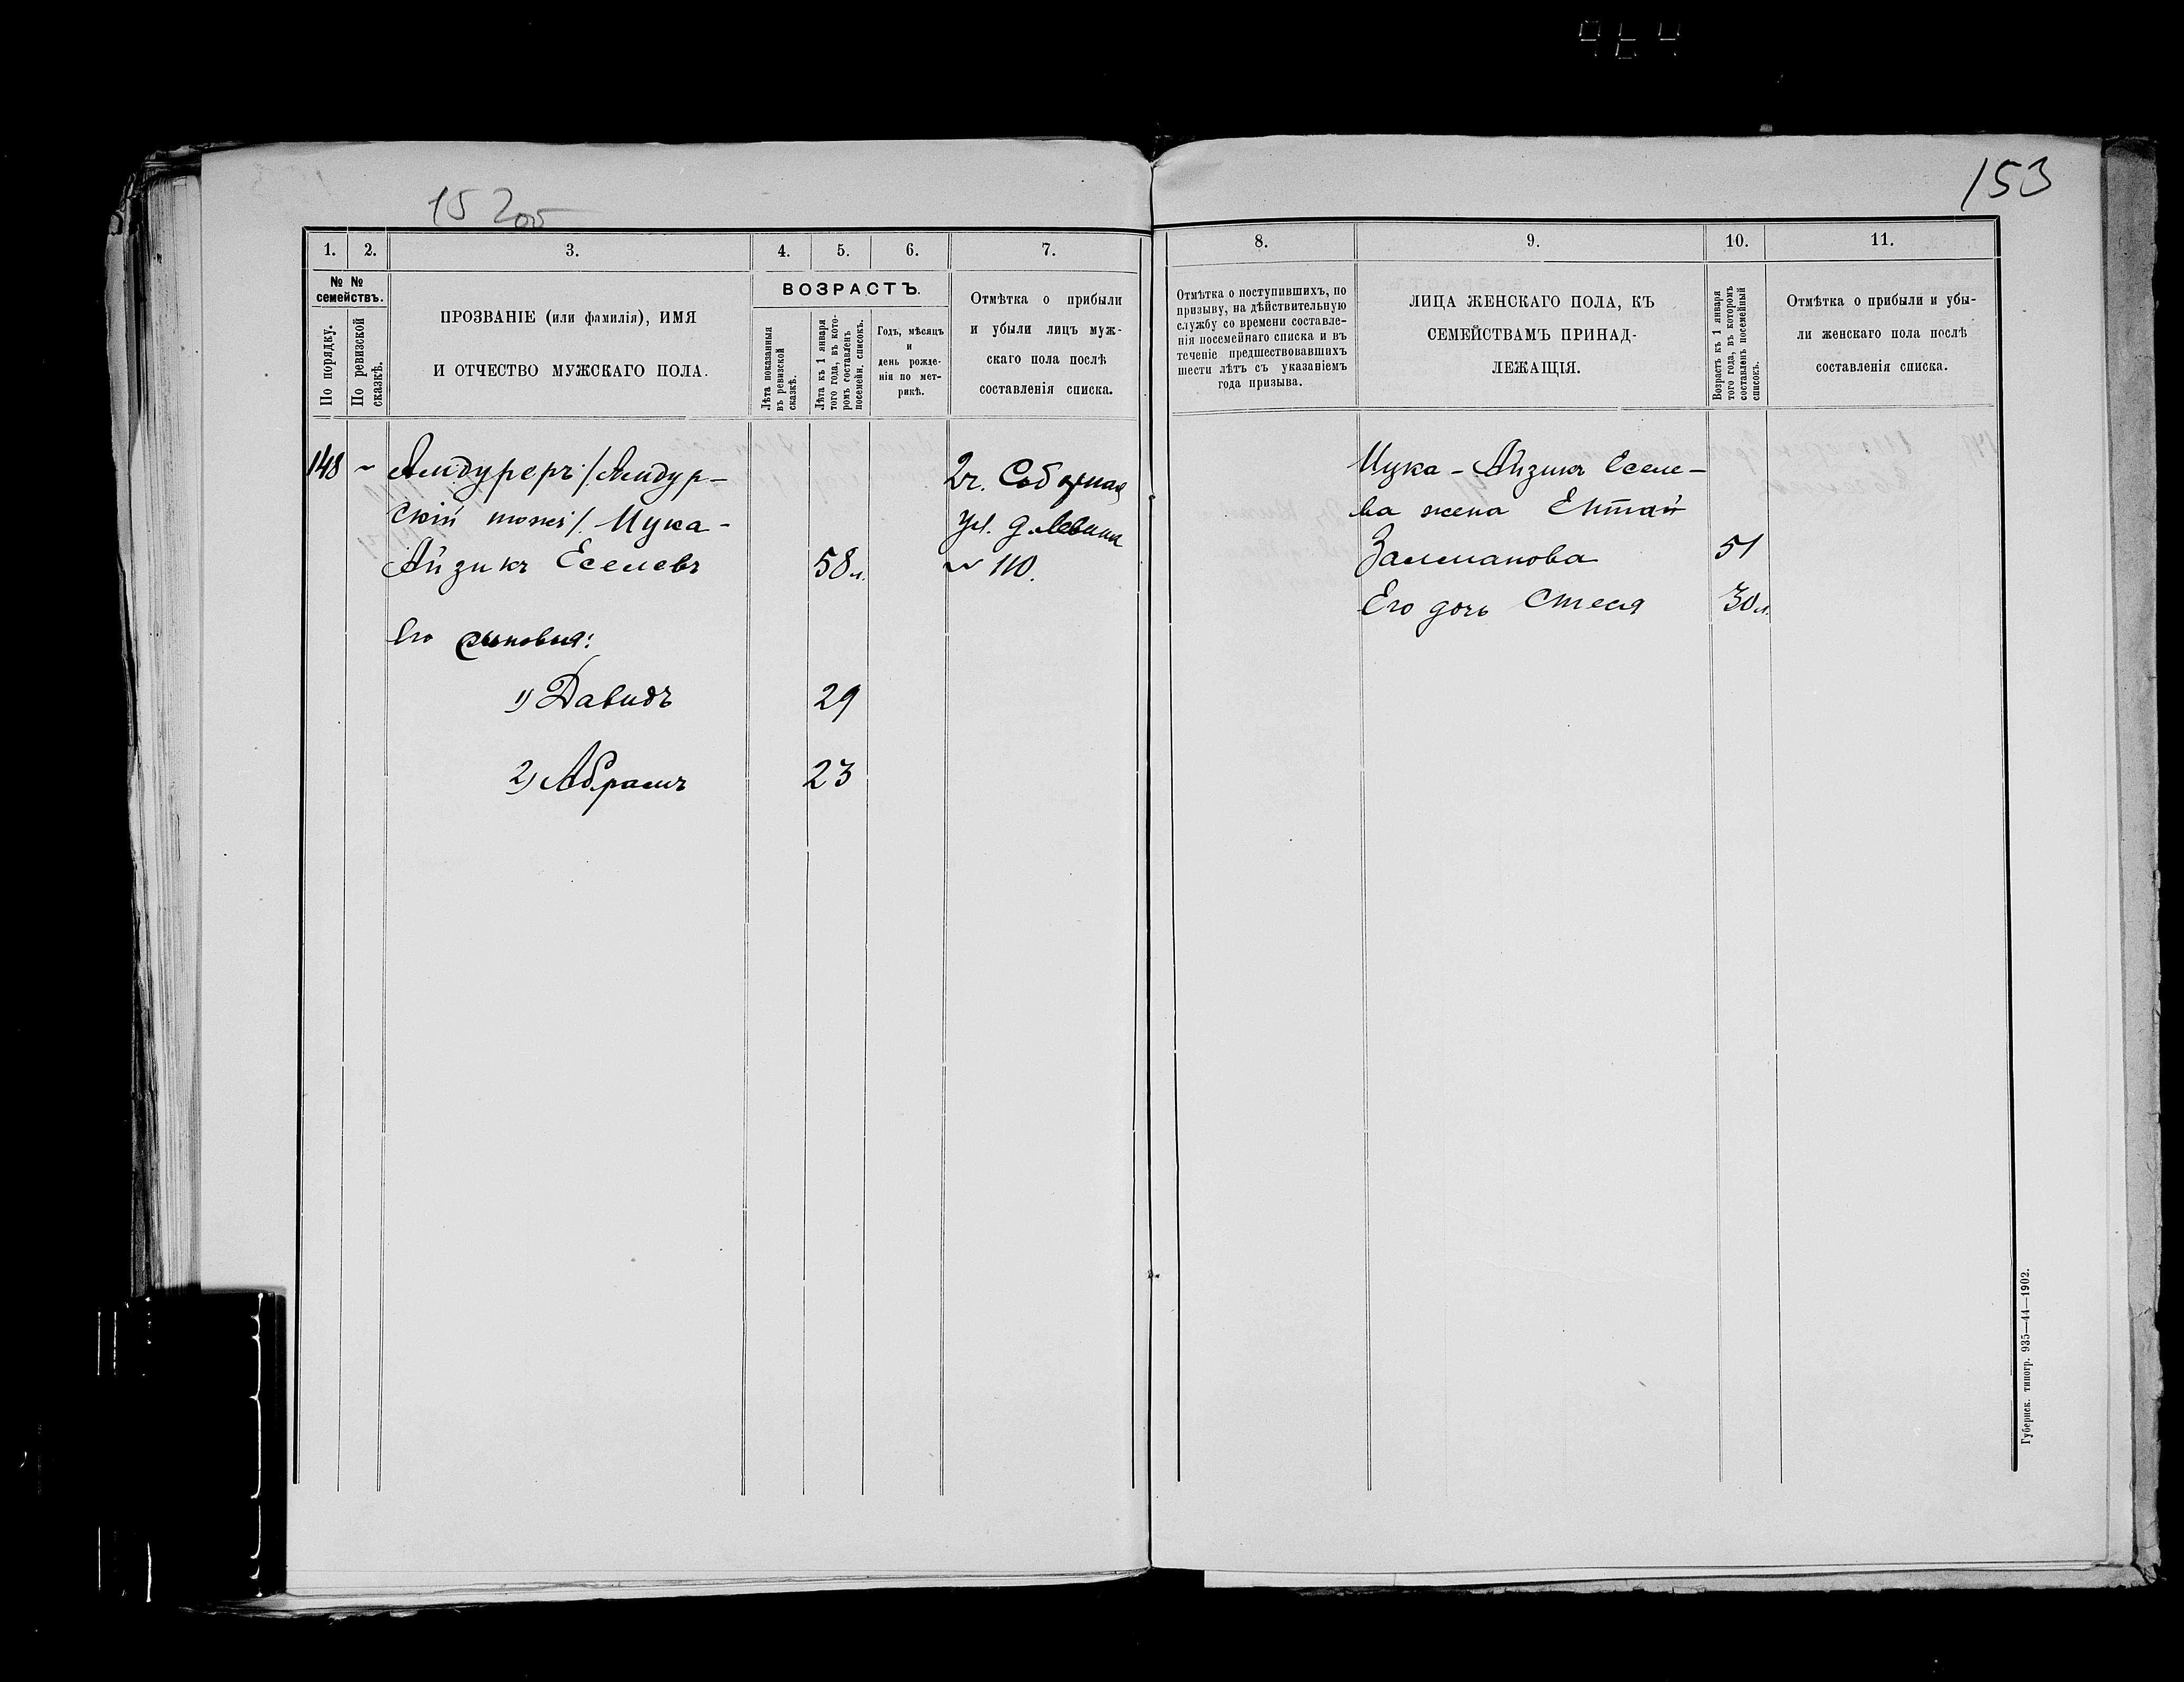 153
15 2об
1. 2. 3. 4. 5. 6. 7.
№ № семействъ.
По порядку.
По ревизской сказкѣ.
ПРОЗВАНІЕ (или фамилія), ИМЯ
И ОТЧЕСТВО МУЖСКАГО ПОЛА.
ВОЗРАСТЪ.
Лѣта показанныя
въ ревизской
сказкѣ.
Лѣта къ 1 января
того года, въ кото-
ромъ составленъ
посемейн. списокъ.
Годъ, мѣсяцъ
и
день рожде-
нія по мет-
рикѣ.
Отмѣтка о прибыли
и убыли лицъ муж-
скаго пола послѣ
составленія списка.
148 ~ Амдуреръ /Амдур-
скій тожъ/ Мука-
Айзикъ Еселевъ 58 л.
Его сыновья:
1) Давидъ 29
2) Абрамъ 23
2ч. Соборная
ул. д. Левина
№ 110.
8. 9. 10. 11.
Отмѣтка о поступившихъ, по
призыву, на дѣйствительную
службу со времени составле-
нія посемейнаго списка и въ
теченіе предшествовавшихъ
шести лѣтъ съ указаніемъ
года призыва.
ЛИЦА ЖЕНСКАГО ПОЛА, КЪ
СЕМЕЙСТВАМЪ ПРИНАД-
ЛЕЖАЩІЯ.
Возрастъ къ 1 января
того года, въ которомъ
составленъ посемейный
списокъ.
Отмѣтка о прибыли и убы-
ли женскаго пола послѣ
составленія списка.
Мука-Айзика Еселе-
ва жена Ента
Залманова 51
Его дочь Стеся 30 л.
Губернск. типогр. 935—44—1902.